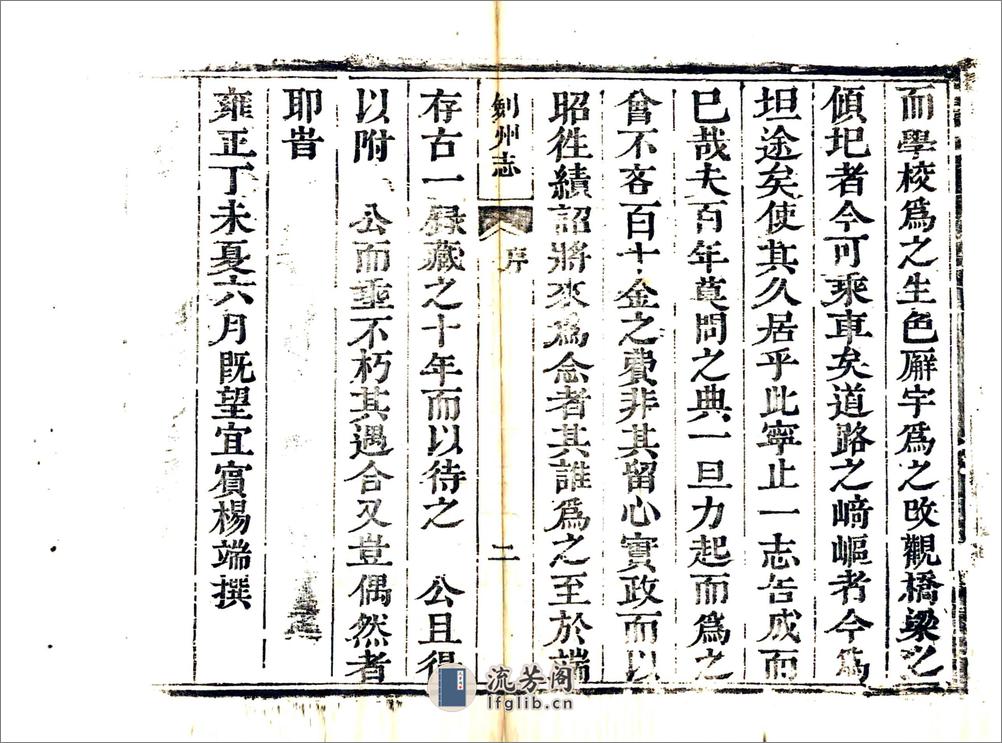 而學校爲之生色廨宇爲之改觀橋梁之
傾圮者今可乘車矣道路之﨑嶇者今爲
坦途矣使其久居乎此寧止一志告成而
已哉夫百年莫問之典一旦力起而爲之
曾不吝百十金之費非其留心實政而以
昭徃績詔將來爲念者其誰爲之至於端
劍州志 序 二
存古一録藏之十年而以待之 公且得
以附 公而垂不朽其遇合又豈偶然者
耶旹
雍正丁未夏六月既望宜賓楊端撰
流芳阁
lfglib.cn